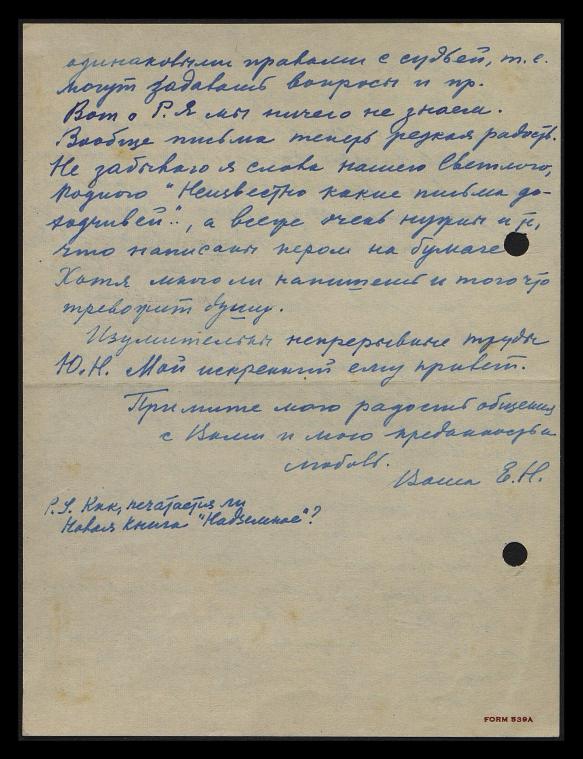 одинаковыми правами с судьей, т.е.
могут задавать вопросы и пр.
Вот о Р. Я мы ничего не знаем.
Вообще письма теперь редкая радость.
Не забываю я слова нашего Светлого,
Родного "Неизвестно какие письма до-
ходчивей", а всеже очень нужны и те,
что написаны пером на бумаге
Хотя много ли напишешь и того что
тревожит душу.
Изумительны непрерывные труды
Ю.Н. Мой искренний ему привет.
Примите мою радость общения
с Вами и мою преданность и
любовь.
Ваша Е.Н.
P.S. Как, печатается ли
Новая Книга "Надземное"?
FORM 539A